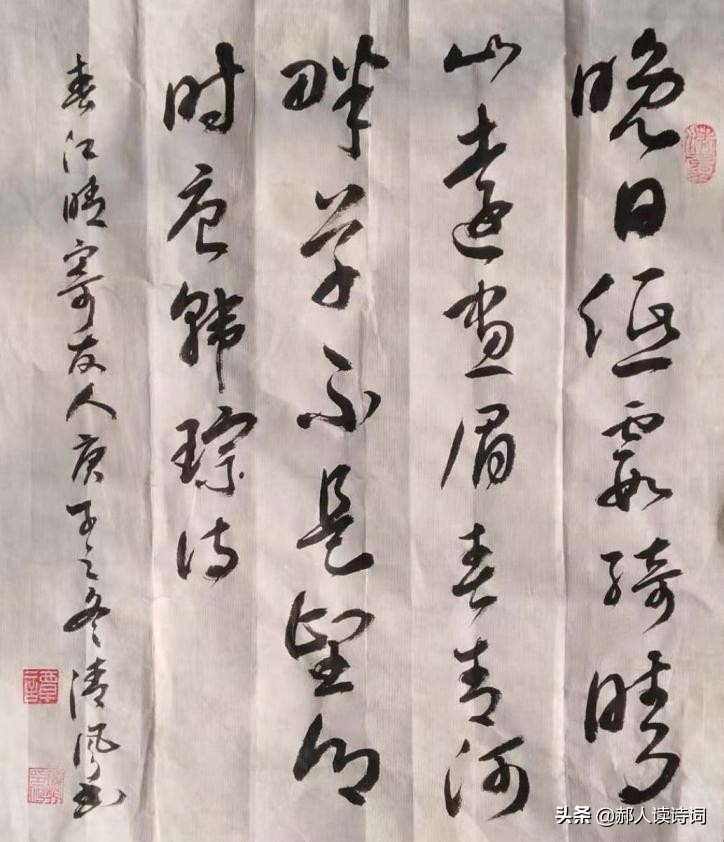 晚日低霞绮晴
山远画眉春青河
畔草不是望乡
时唐韩琮诗
春江晴寄友人庚子之冬清风书
头条 @郝人读诗词